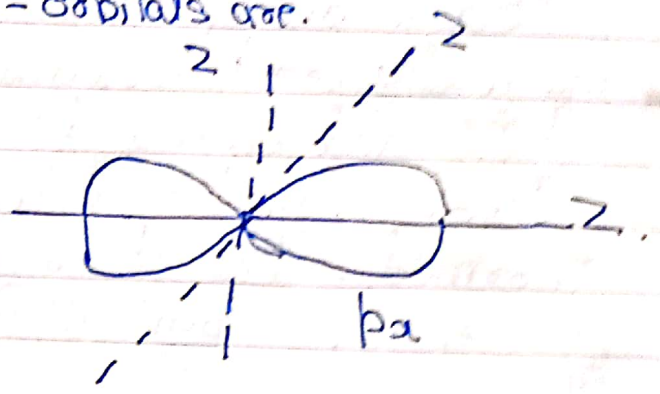 - orbitals are.
z
z
z.
px